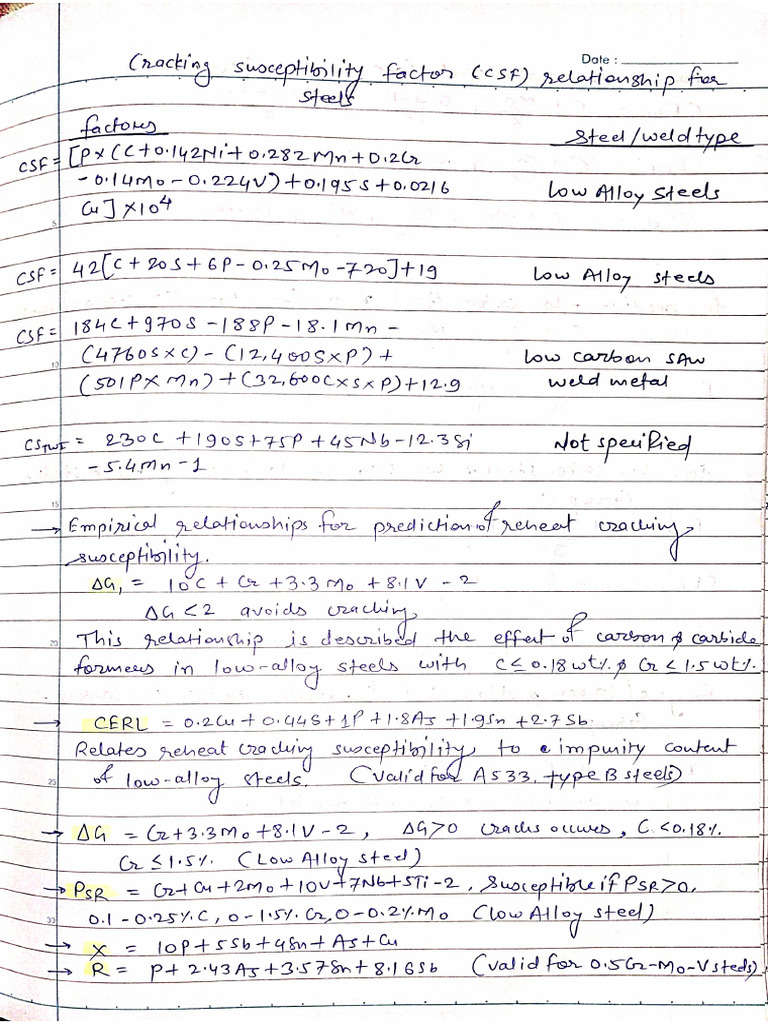 Date :
Cracking susceptibility factor (CSF) relationship for
steels
factores
Steel/weld type
CSF = [P×(C+0.142Ni+0.282Mn+0.2Cr
-0.14Mo-0.224V)+0.195S+0.0216
Cu]×10⁴
Low Alloy Steels
CSF = 42[C+20S+6P-0.25Mo-720]+19
Low Alloy steels
CSF = 184C+970S-188P-18.1Mn-
(4760S×C)-(12,400S×P)+
(501P×Mn)+(32,600C×S×P)+12.9
low carbon SAW
weld metal
CSTWI = 230C+190S+75P+45Nb-12.3Si
-5.4Mn-1
Not specified
→ Empirical relationships for prediction of reheat cracking
susceptibility.
ΔG₁ = 10C + Cr + 3.3Mo + 8.1V - 2
ΔG<2 avoids cracking
This relationship is described the effect of carbon & carbide
formers in low-alloy steels with C≤0.18wt% & Cr≤1.5wt%.
→ CERL = 0.2Cu+0.44S+1P+1.8As+1.9Sn+2.7Sb
Relates reheat cracking susceptibility to impurity content
of low-alloy steels. (Valid for A533, type B steels)
→ ΔG = Cr+3.3Mo+8.1V-2, ΔG>0 cracks occures, C<0.18%
Cr≤1.5% (Low Alloy steel)
→ PSR = Cr+Cu+2Mo+10V+7Nb+5Ti-2, Susceptible if PSR>0,
0.1-0.25%C, 0-1.5%Cr, 0-0.2%Mo (Low Alloy steel)
→ X = 10P+5Sb+4Sn+As+Cu
→ R = P+2.43As+3.57Sn+8.16Sb (valid for 0.5Cr-Mo-V steels)
5
10
15
20
25
30